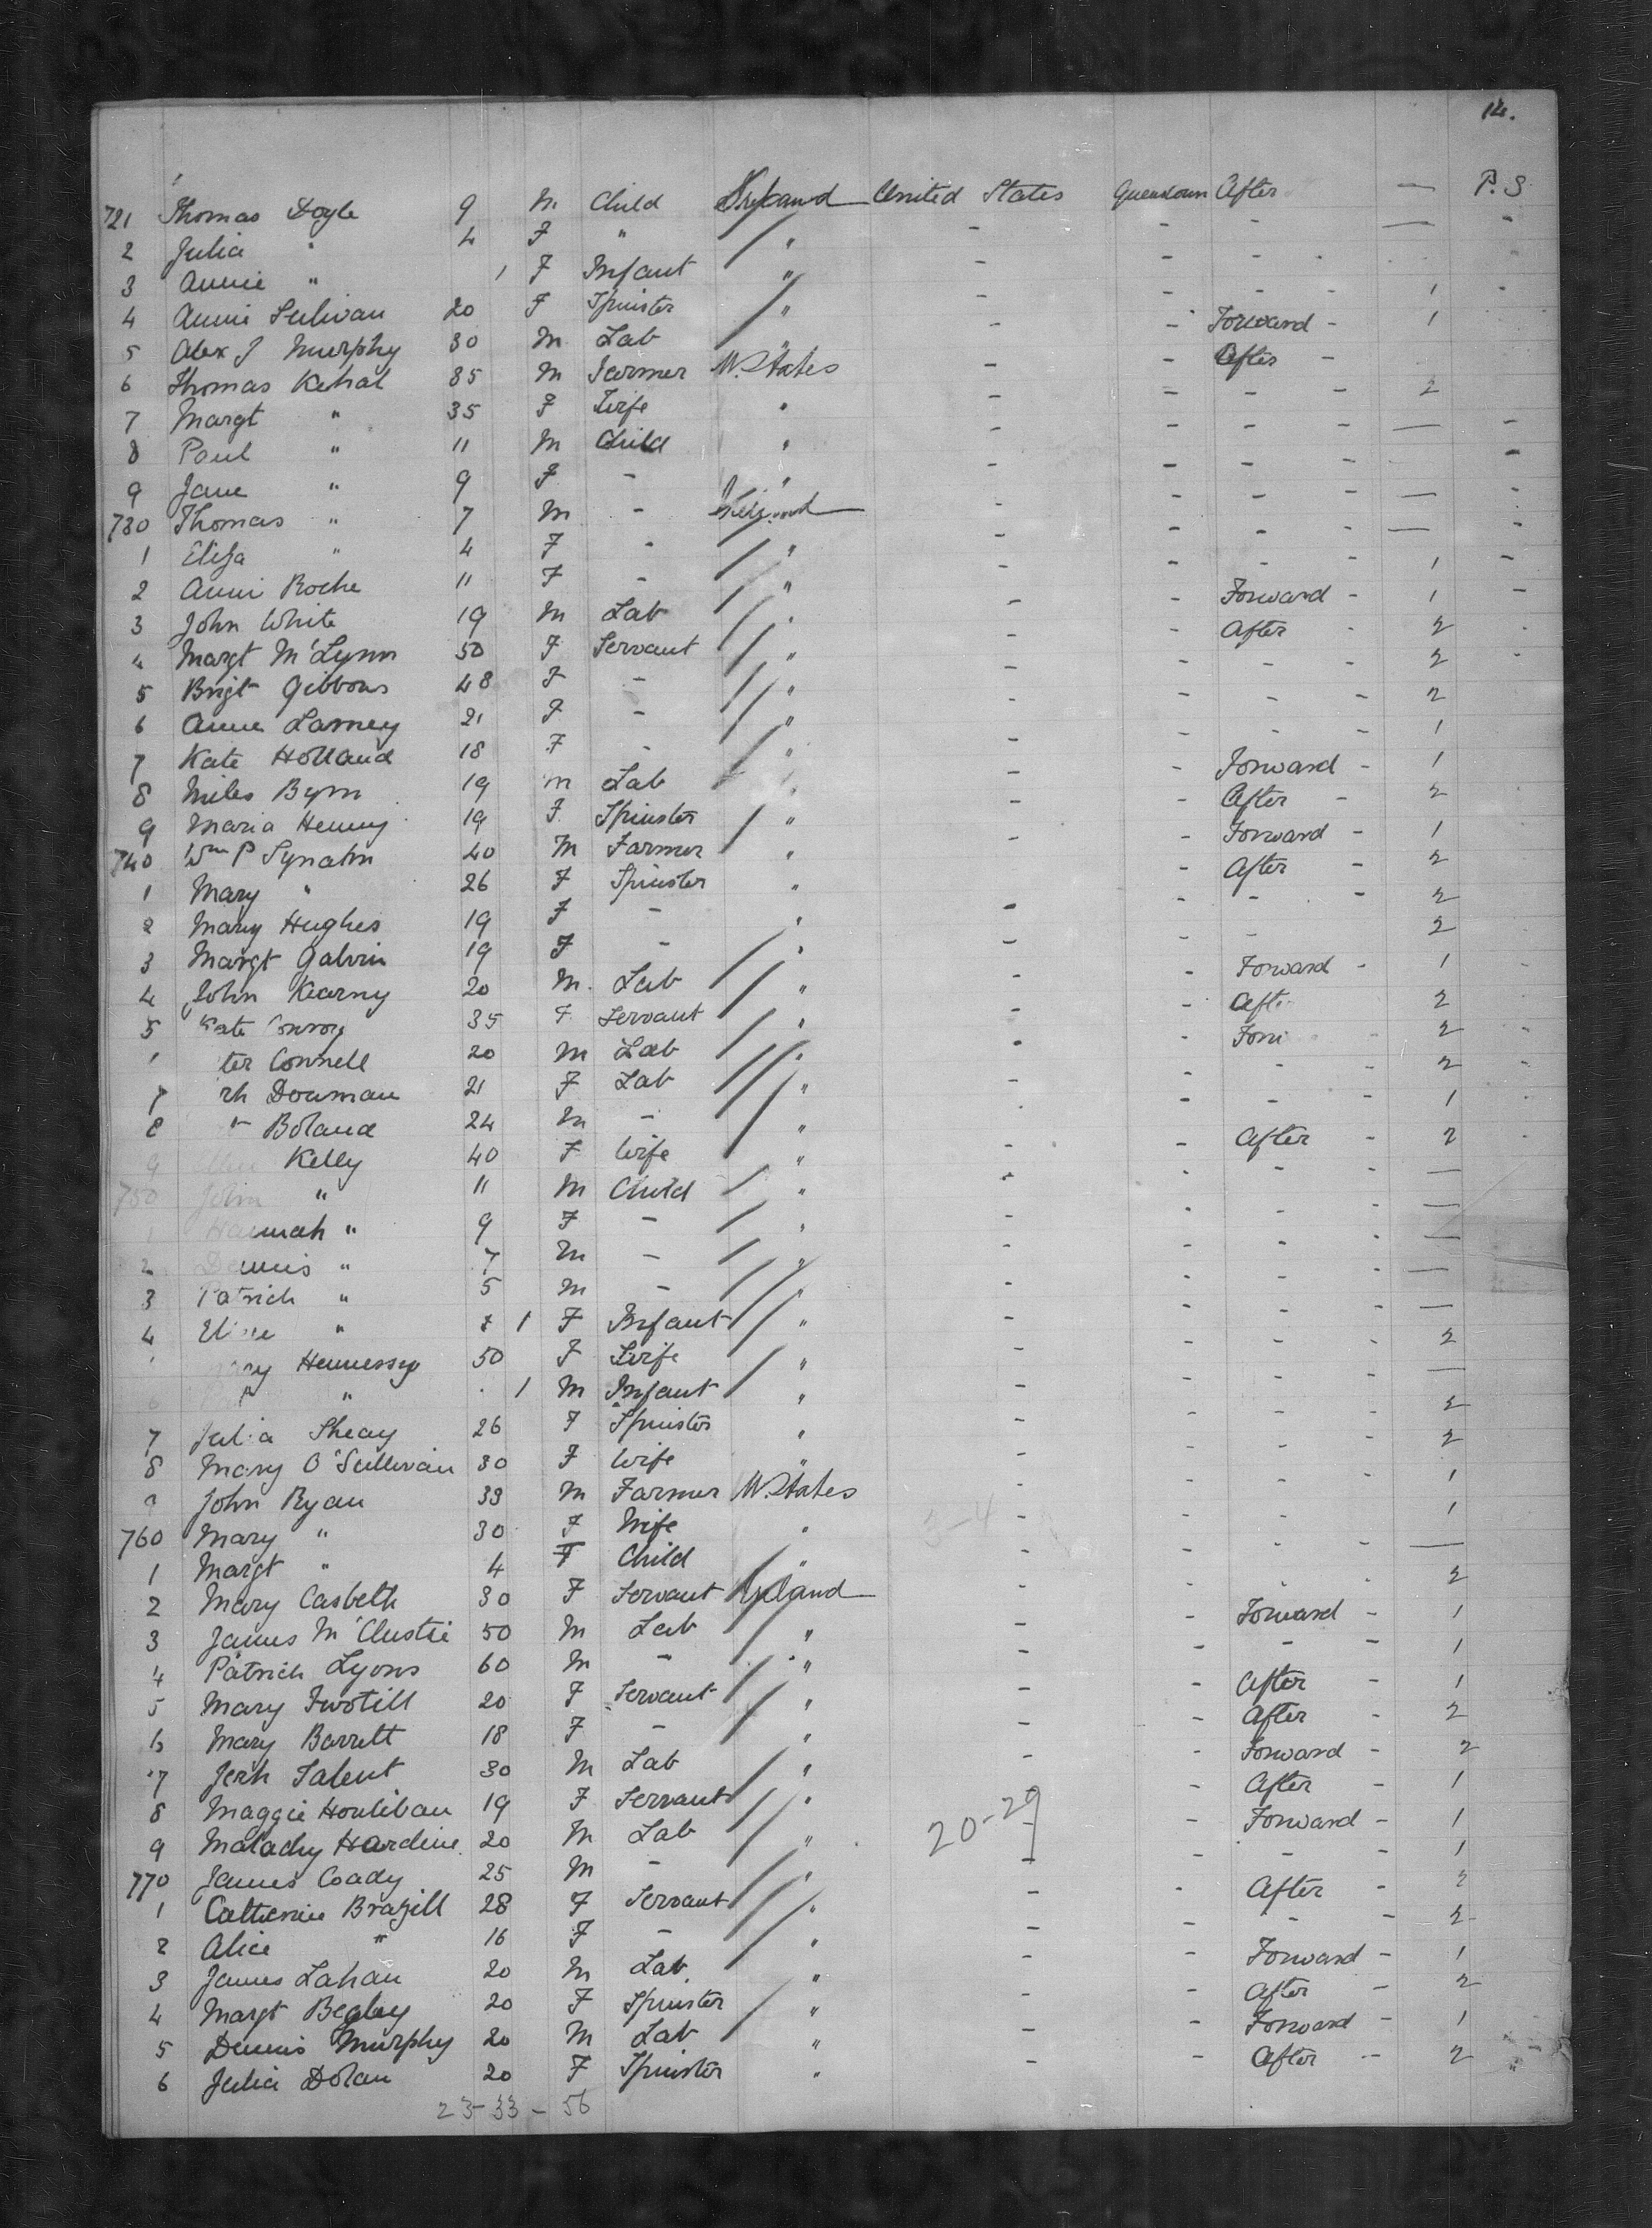 14.
721 Thomas Doyle 9 M. Child Ireland United States Queenstown After — P.S
2 Julia " 4 F " " - - — -
3 Annie " 1 F Infant " - - - -
4 Annie Sulivan 20 F Spinster " - - - - 1 -
5 Alex J Murphy 30 M Lab " - - Forward - 1
6 Thomas Kehal 35 M Farmer U. States - - After -
7 Margt " 35 F Wife " - - - - 2
8 Paul " 11 M Child " - - - - — -
9 Jane " 9 F - " - - - - -
730 Thomas " 7 M - Ireland - - - — -
1 Eliza " 4 F - " - - - - — -
2 Annie Roche 11 F - " - - - - 1 -
3 John White 19 M Lab " - - Forward - 1 -
4 Margt McLynn 50 F Servant " - - After - 2 -
5 Brigt Gibbons 48 F - " - - - 2 -
6 Annie Larney 21 F - " - - - - 2
7 Kate Holland 18 F - " - - - - 1
8 Miles Byrn 19 M Lab " - - Forward - 1
9 Maria Henny 19 F Spinster " - - After - 2
740 Wm P 40 M Farmer " - - Forward - 1
1 Mary " 26 F Spinster " - After - 2
2 Mary Hughes 19 F - " - - - - 2
3 Margt Galvin 19 F - " - - - 2
4 John Kearny 20 M. Lab " - - Forward - 1
5 Kate Conroy 35 F Servant " - - Afte 2
ter Connell 20 M Lab " - - Forw 2 -
7 rh Dounan 21 F Lab " - - - - 2 -
8 " Boland 24 M - " - - - - 1
9 Kelly 40 F Wife " - - After - 2
750 John " 11 M Child " - - - - —
Hannah " 9 F - " - - - - —
2 Dennis " 7 M - " - - - - —
3 Patrick " 5 M - " - - - - —
4 " 1 F Infant " - - - - —
Hennessy 50 F Wife " - - - - 2
" 1 M Infant " - - - - —
7 Julia Sheay 26 F Spinster " - - - - 2
8 Mary O'Sullivan 30 F Wife " - - - - 2
9 John Ryan 33 M Farmer U. States - - - - 1
760 Mary " 30 F Wife " - - - - 1
1 Margt " 4 F Child " - - - - —
2 Mary Casbeth 30 F Servant Ireland - - - - 2
3 James McClustie 50 M Lab " - - Forward - 1
4 Patrick Lyons 60 M - " - - - - 1
5 Mary 20 F Servant " - - After - 1
6 Mary Barrett 18 F - " - - After - 2
7 Jerh Talent 30 M Lab " - - Forward - 2
8 Maggie Houlihan 19 F Servant " - - After - 1
9 Malachy Hardine 20 M Lab " 20-29 - - Forward - 1
770 James Coady 25 M - " - - - - 1
1 Catherine Brazill 28 F Servant " - - After - 2
2 Alice " 16 F - " - - - - 2
3 James Lahan 20 M Lab " - - Forward - 1
4 Margt Begley 20 F Spinster " - - After - 2
5 Dennis Murphy 20 M Lab " - - Forward - 1
6 Julia Dolan 20 F Spinster " - - After - 2 "
23-33-56